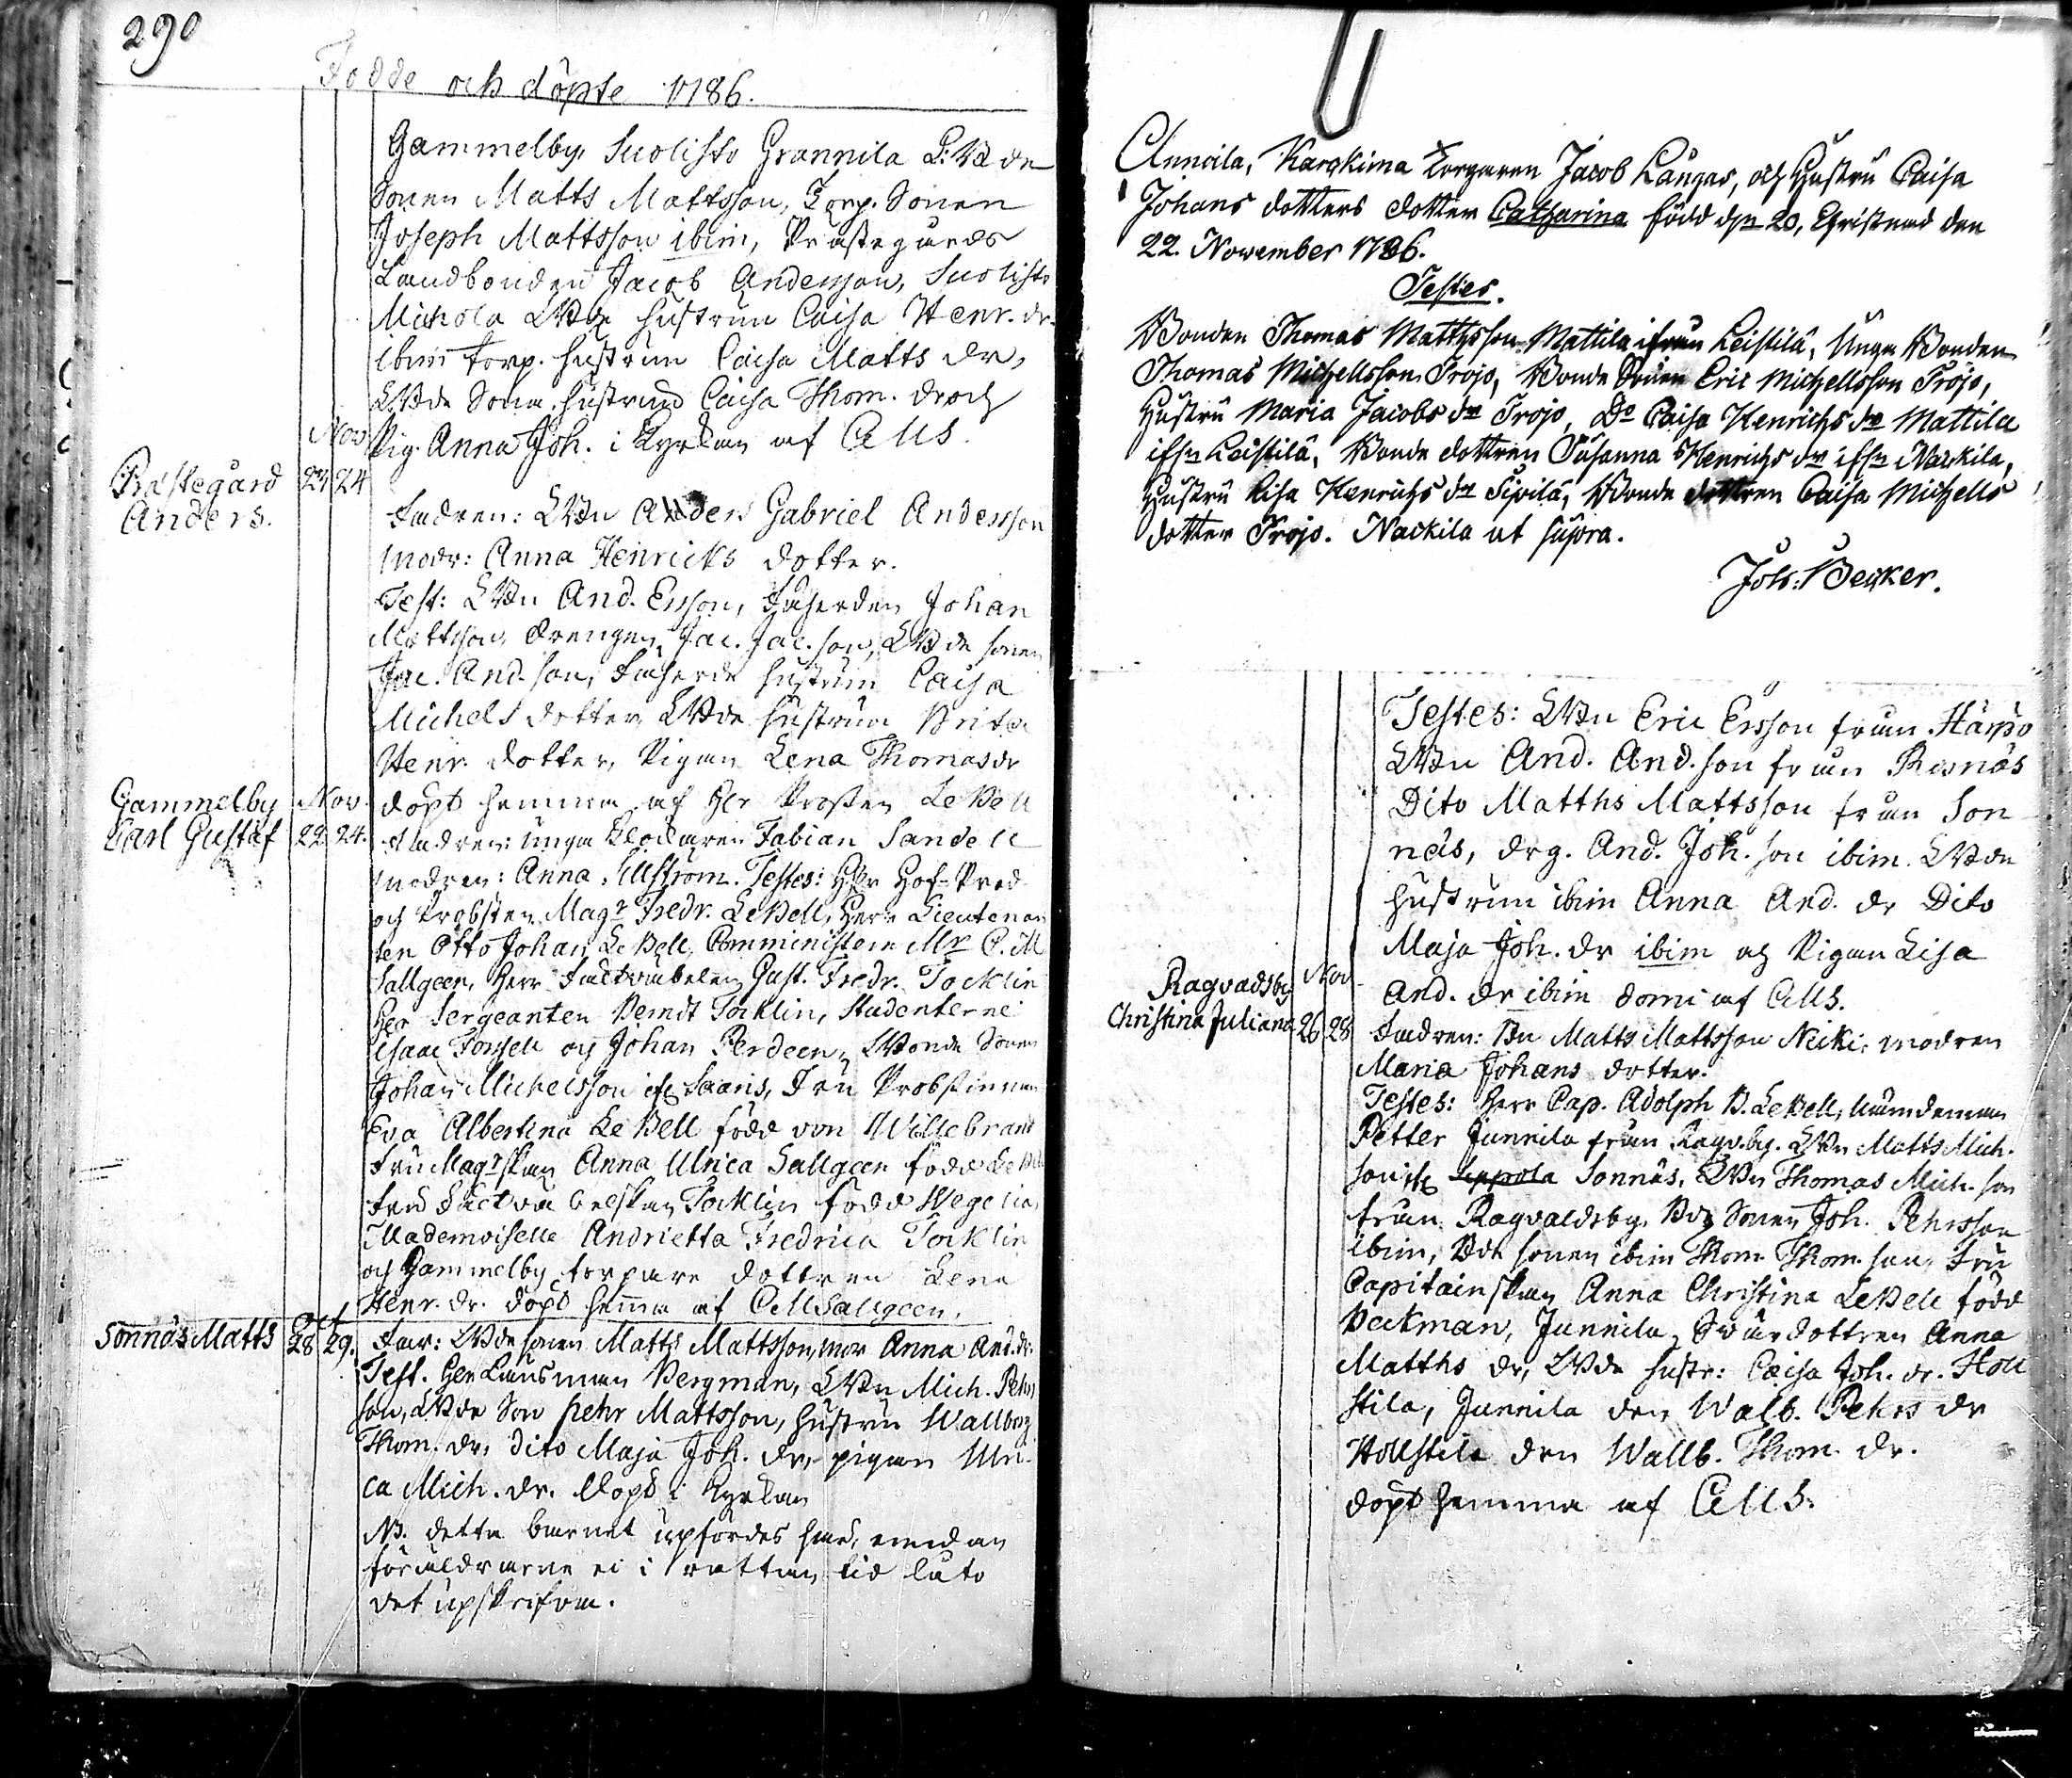 290
Födde och döpte 1786.
Gammelby, Suolisto Grannila L:Bde
Sonen Matts Mattsson, Torp. Sonen
Joseph Mattsson ibim, Prästegårds
Landbonden Jacob Andersson, Suolisto
Mickola LBde hustrun Caisa Henr. dr.
ibim torp. hustrun Caisa Matts dr,
LBde Sona hustrun Caisa Thom. dr och
Pig. Anna Joh. i Kyrkan af CMS.
Nov.
Prästegård 23 24
Anders.
Fadren: LBn Anders Gabriel Andersson
Modr: Anna Henricks dotter.
Test: LBn And. Ersson, Faherden Johan
Mattsson, drengen Jac. Jac. son, LBde sonen
Jac. And. son, Faherde hustrun Caisa
Michels dotter, LBde hustrun Brita
Henr. dotter, Pigan Lena Thomasdr
döpt hemma af Hr Prosten LeBell
Gammelby Nov.
Carl Gustaf 22 24.
Fadren: unga Klockaren Fabian Sandell
modren: Anna Sellström. Testes: Herr Hof-Pred.
och Probsten Magr Fredr. LeBell, Herr Lieutenan
ten Otto Johan LeBell, Comministern Mr C. M
Sallgeen, Herr Gust. Fredr. Tocklin
Herr Sergeanten Berndt Tocklin, Studenterne
Isaac Forssell och Johan Perdeen, LBonde Sonen
Johan Michelsson ifr Saaris, Fru Probstinnan
Eva Albertina LeBell född von Willebrand
Fru Magrskan Anna Ulrica Sallgeen född LeBell
Fru Tocklin född Wegelia
Mademoiselle Andrietta Fredrica Tocklin
och Gammelby torpare dottren Lena
Henr. dr. döpt hema af CMSallgeen.
Oct
Sonnäs Matts 28 29.
Far: LBde sonen Matts Mattsson, mor Anna And. dr.
Test. Herr Länsman Bergman, LBn Mich. Pehrs
son, LBde Son Pehr Mattsson, hustru Wallborg
Thom. dr, Dito Maja Joh. dr, pigan Ulri-
ca Mich. dr. Döpt i Kyrkan
NB. detta barnet upfördes här, emedan
föräldrarne ei i rättan tid låto
det upskrifva.
Annoila, Karqkima Torparen Jacob Långas, och Hustru Caisa
Johans dotters dotter Catharina född den 20, Christnad den
22. November 1786.
Testes.
Bonden Thomas Matthsson Mattila ifrån Leistilä, Unga Bonden
Thomas Michellsson Trojo, Bonde Sonen Eric Michellsson Trojo,
Hustru Maria Jacobs dr Trojo, Do Caisa Henrichs dr Mattila
ifrn Leistilä, Bonde dottren Susanna Henrichs dr ifrn Nackila,
Hustru Lisa Henrichs dr Sipilä, Bonde dottren Caisa Michells
dotter Trojo. Nackila ut supra.
Joh: Becker.
Testes: LBn Eric Ersson från Härpö
LBn And. And. son från Risnäs
Dito Matths Mattsson från Son
näs, drg. And. Joh. son ibim. LBde
hustrun ibim Anna And. dr Dito
Maja Joh. dr ibim och Pigan Lisa
And. dr ibim domi af CMS.
Ragvadsby Nov.
Christina Juliana 26 28
Fadren: Bn Matts Mattsson Neiki, modren
Maria Johans dotter.
Testes: Herr Cap. Adolph B. LeBell, Nämndeman
Petter Junnila från Ragv.by. LBn Matts Mich.
son ifr Seppola Sonnäs, LBn Thomas Mich. son
från Ragvaldsby, Bde Sonen Joh. Pehrsson
ibim, Bde sonen ibim Thom. Thom. son, Fru
Capitainskan Anna Christina LeBell född
Beckman, Junnila Svärdottren Anna
Matths dr, LBde hustr: Caisa Joh. dr. Holl
stila, Junnila dr, Walb. Pehrs dr
Hollstila dr Wallb. Thom. dr.
döpt hemma af CMS.